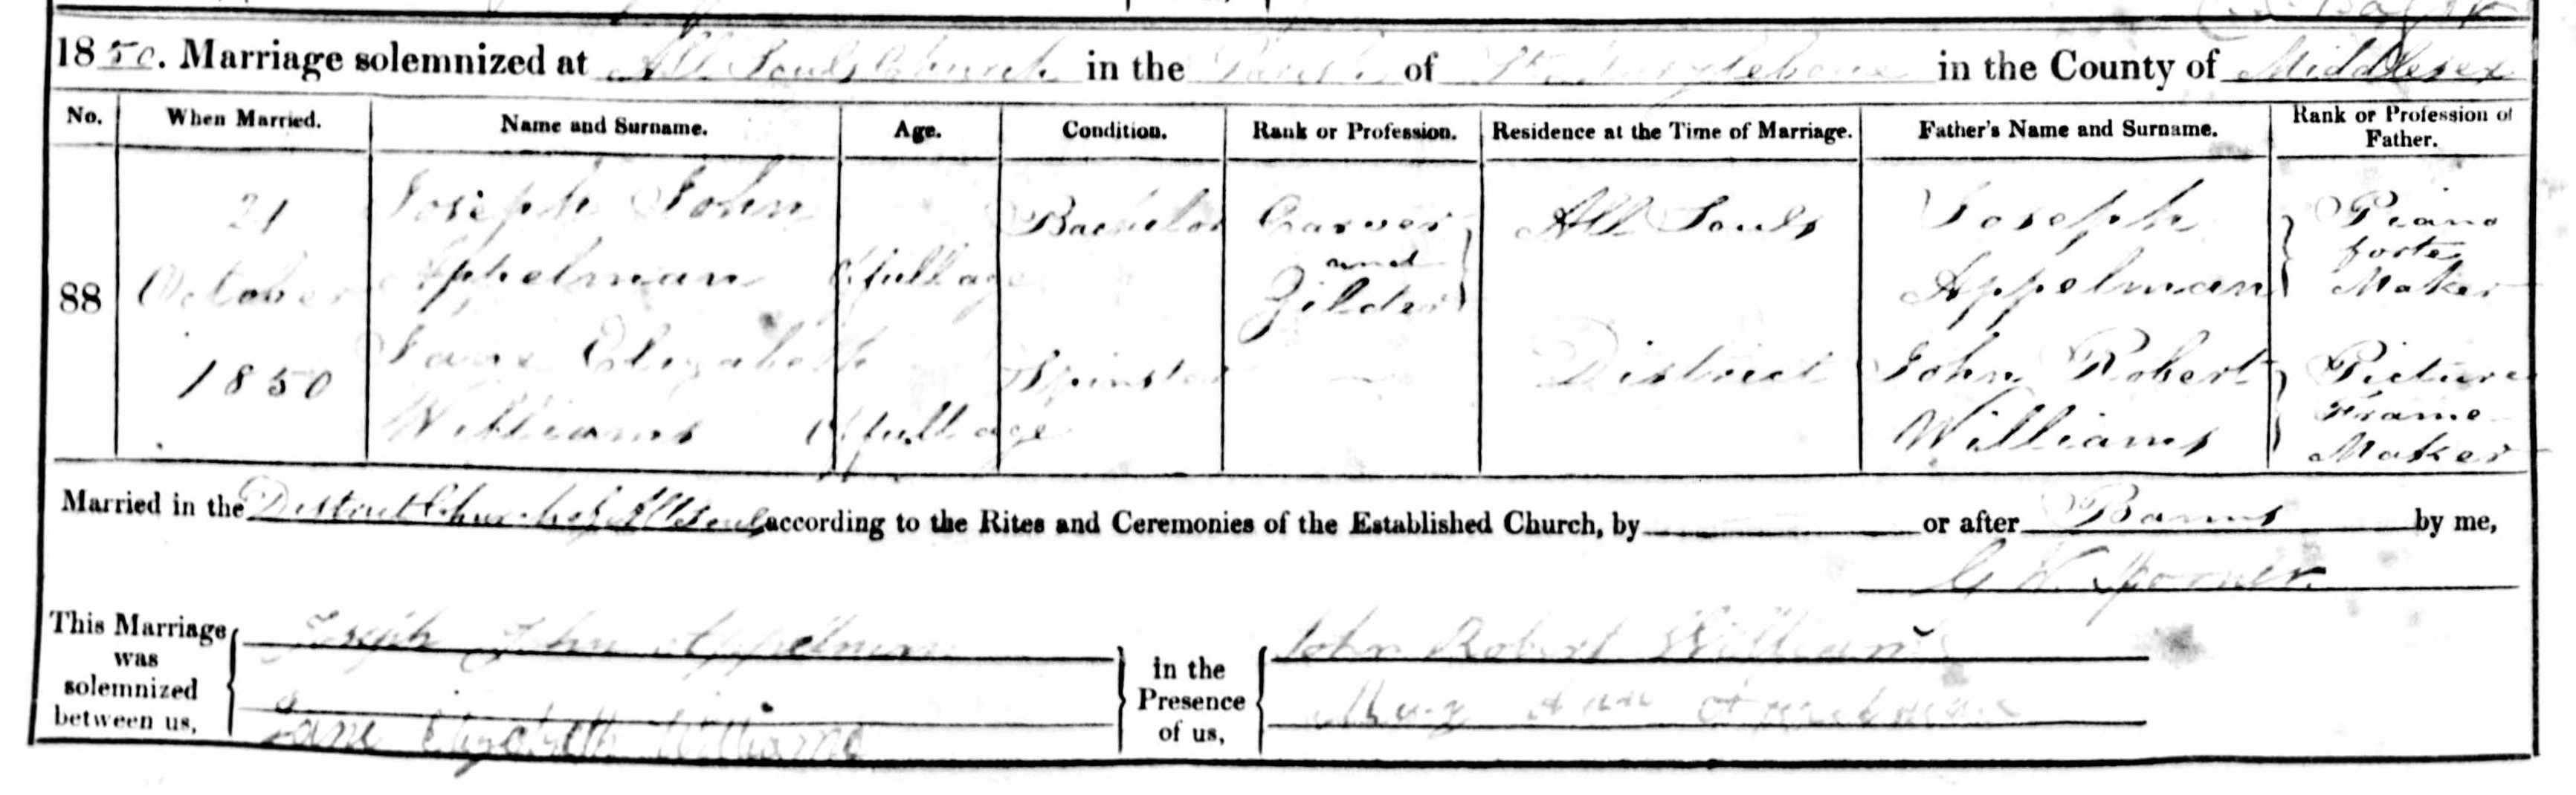 1850. Marriage solemnized at All Souls Church in the Parish of St. Marylebone in the County of Middlesex
No. When Married. Name and Surname. Age. Condition. Rank or Profession. Residence at the Time of Marriage. Father's Name and Surname. Rank or Profession of Father.
88 21 October 1850 Joseph John Appelman Of full age Bachelor Carver and Gilder All Souls Joseph Appelman Piano forte Maker
Jane Elizabeth Williams Of full age Spinster — District John Robert Williams Picture Frame Maker
Married in the District Church of All Souls according to the Rites and Ceremonies of the Established Church, by or after Banns by me,
This Marriage was solemnized between us, Joseph John Appelman Jane Elizabeth Williams in the Presence of us, John Robert Williams Mary Ann